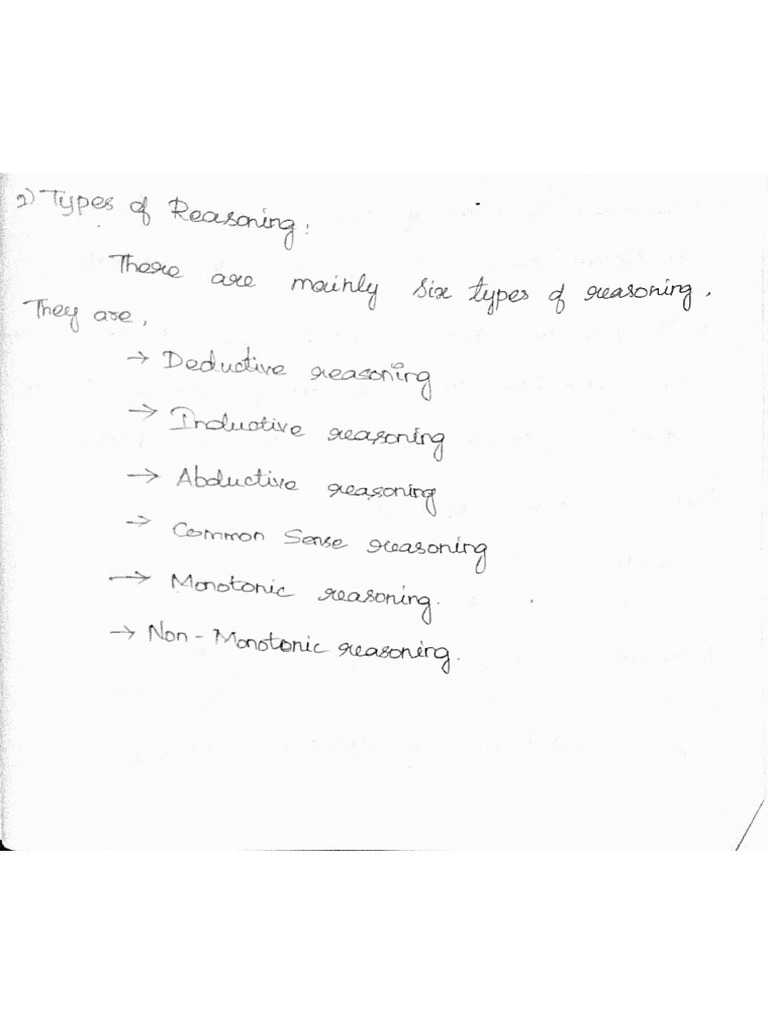 2) Types of Reasoning:
There are mainly six types of reasoning.
They are,
→ Deductive reasoning
→ Inductive reasoning
→ Abductive reasoning
→ Common Sense reasoning
→ Monotonic reasoning.
→ Non-Monotonic reasoning.